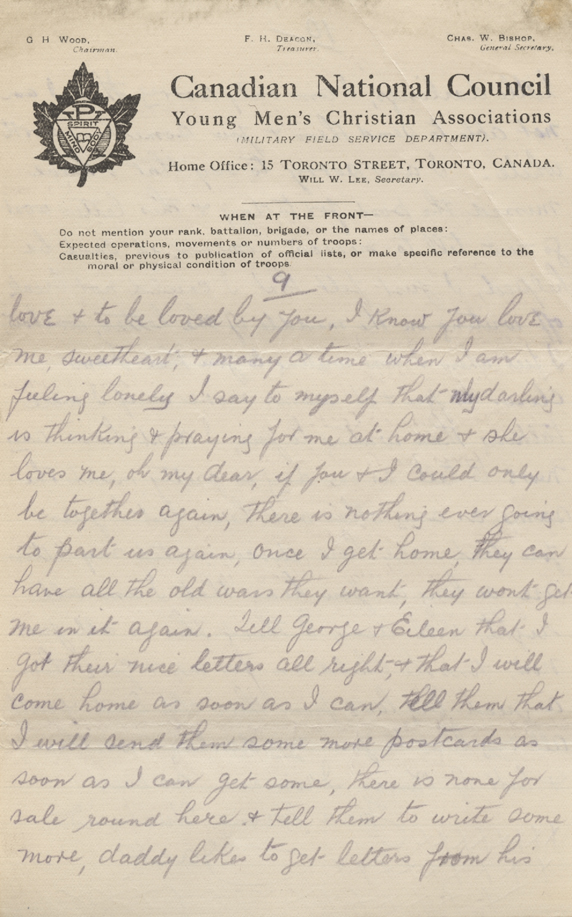 G H Wood, Chairman.
F. H. Deacon, Treasurer.
Chas. W. Bishop, General Secretary.
Canadian National Council
Young Men's Christian Associations
(MILITARY FIELD SERVICE DEPARTMENT).
Home Office: 15 TORONTO STREET, TORONTO, CANADA.
Will W. Lee, Secretary.
SPIRIT
MIND
BODY
WHEN AT THE FRONT—
Do not mention your rank, battalion, brigade, or the names of places:
Expected operations, movements or numbers of troops:
Casualties, previous to publication of official lists, or make specific reference to the
moral or physical condition of troops.
9
love & to be loved by you, I know you love
me, sweetheart, & many a time when I am
feeling lonely I say to myself that my darling
is thinking & praying for me at home & she
loves me, oh my dear, if you & I could only
be together again, there is nothing ever going
to part us again, once I get home, they can
have all the old wars they want, they wont get
me in it again. Tell George & Eileen that I
got their nice letters all right, & that I will
come home as soon as I can, tell them that
I will send them some more postcards as
soon as I can get some, there is none for
sale round here & tell them to write some
more, daddy likes to get letters from his